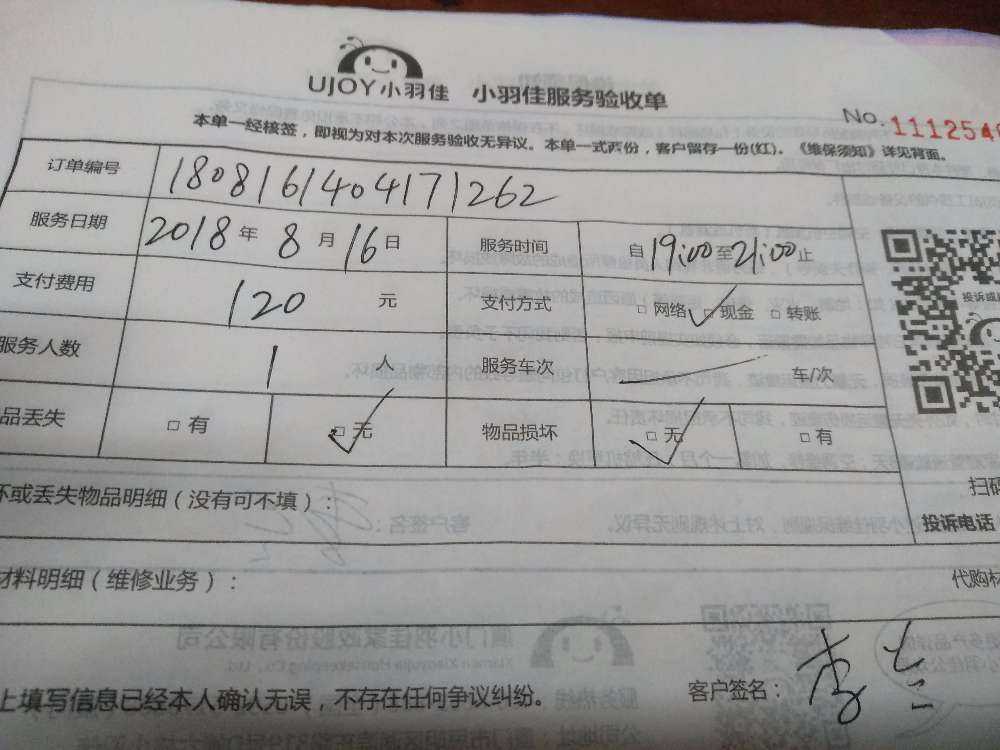 UJOY小羽佳 小羽佳服务验收单
No.111254
本单一经核签，即视为对本次服务验收无异议。本单一式两份，客户留存一份(红)。《维保须知》详见背面。
订单编号 1808161404171262
服务日期 2018年8月16日 服务时间 自19:00至21:00止
支付费用 120元 支付方式 □网络 □现金 □转账
投诉或
服务人数 1人 服务车次 — 车/次
品丢失 □有 □无 物品损坏 □无 □有
扫码
坏或丢失物品明细（没有可不填）：
投诉电话
材料明细（维修业务）：
代购材
上填写信息已经本人确认无误，不存在任何争议纠纷。 客户签名：李